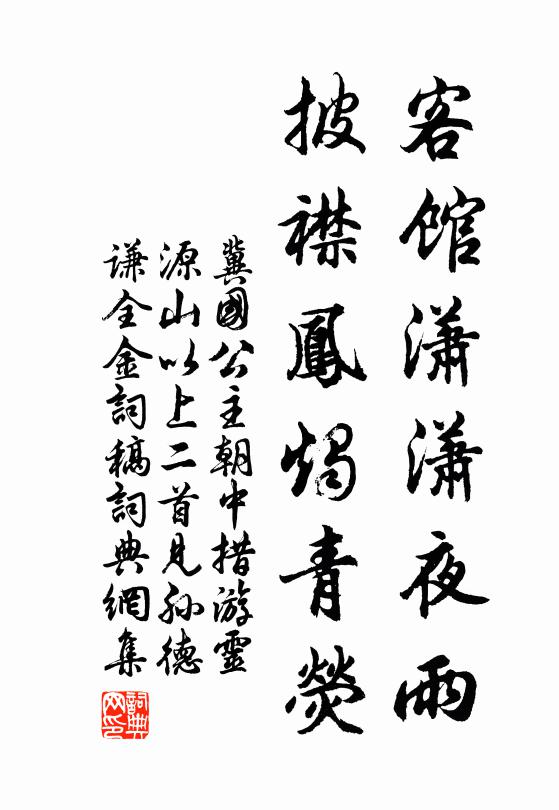 客館瀟瀟夜雨
披襟鳳燭青熒
冀國公主朝中措游靈
源山以上二首見孫德
谦全金詞稿詞典網集
詞典网印